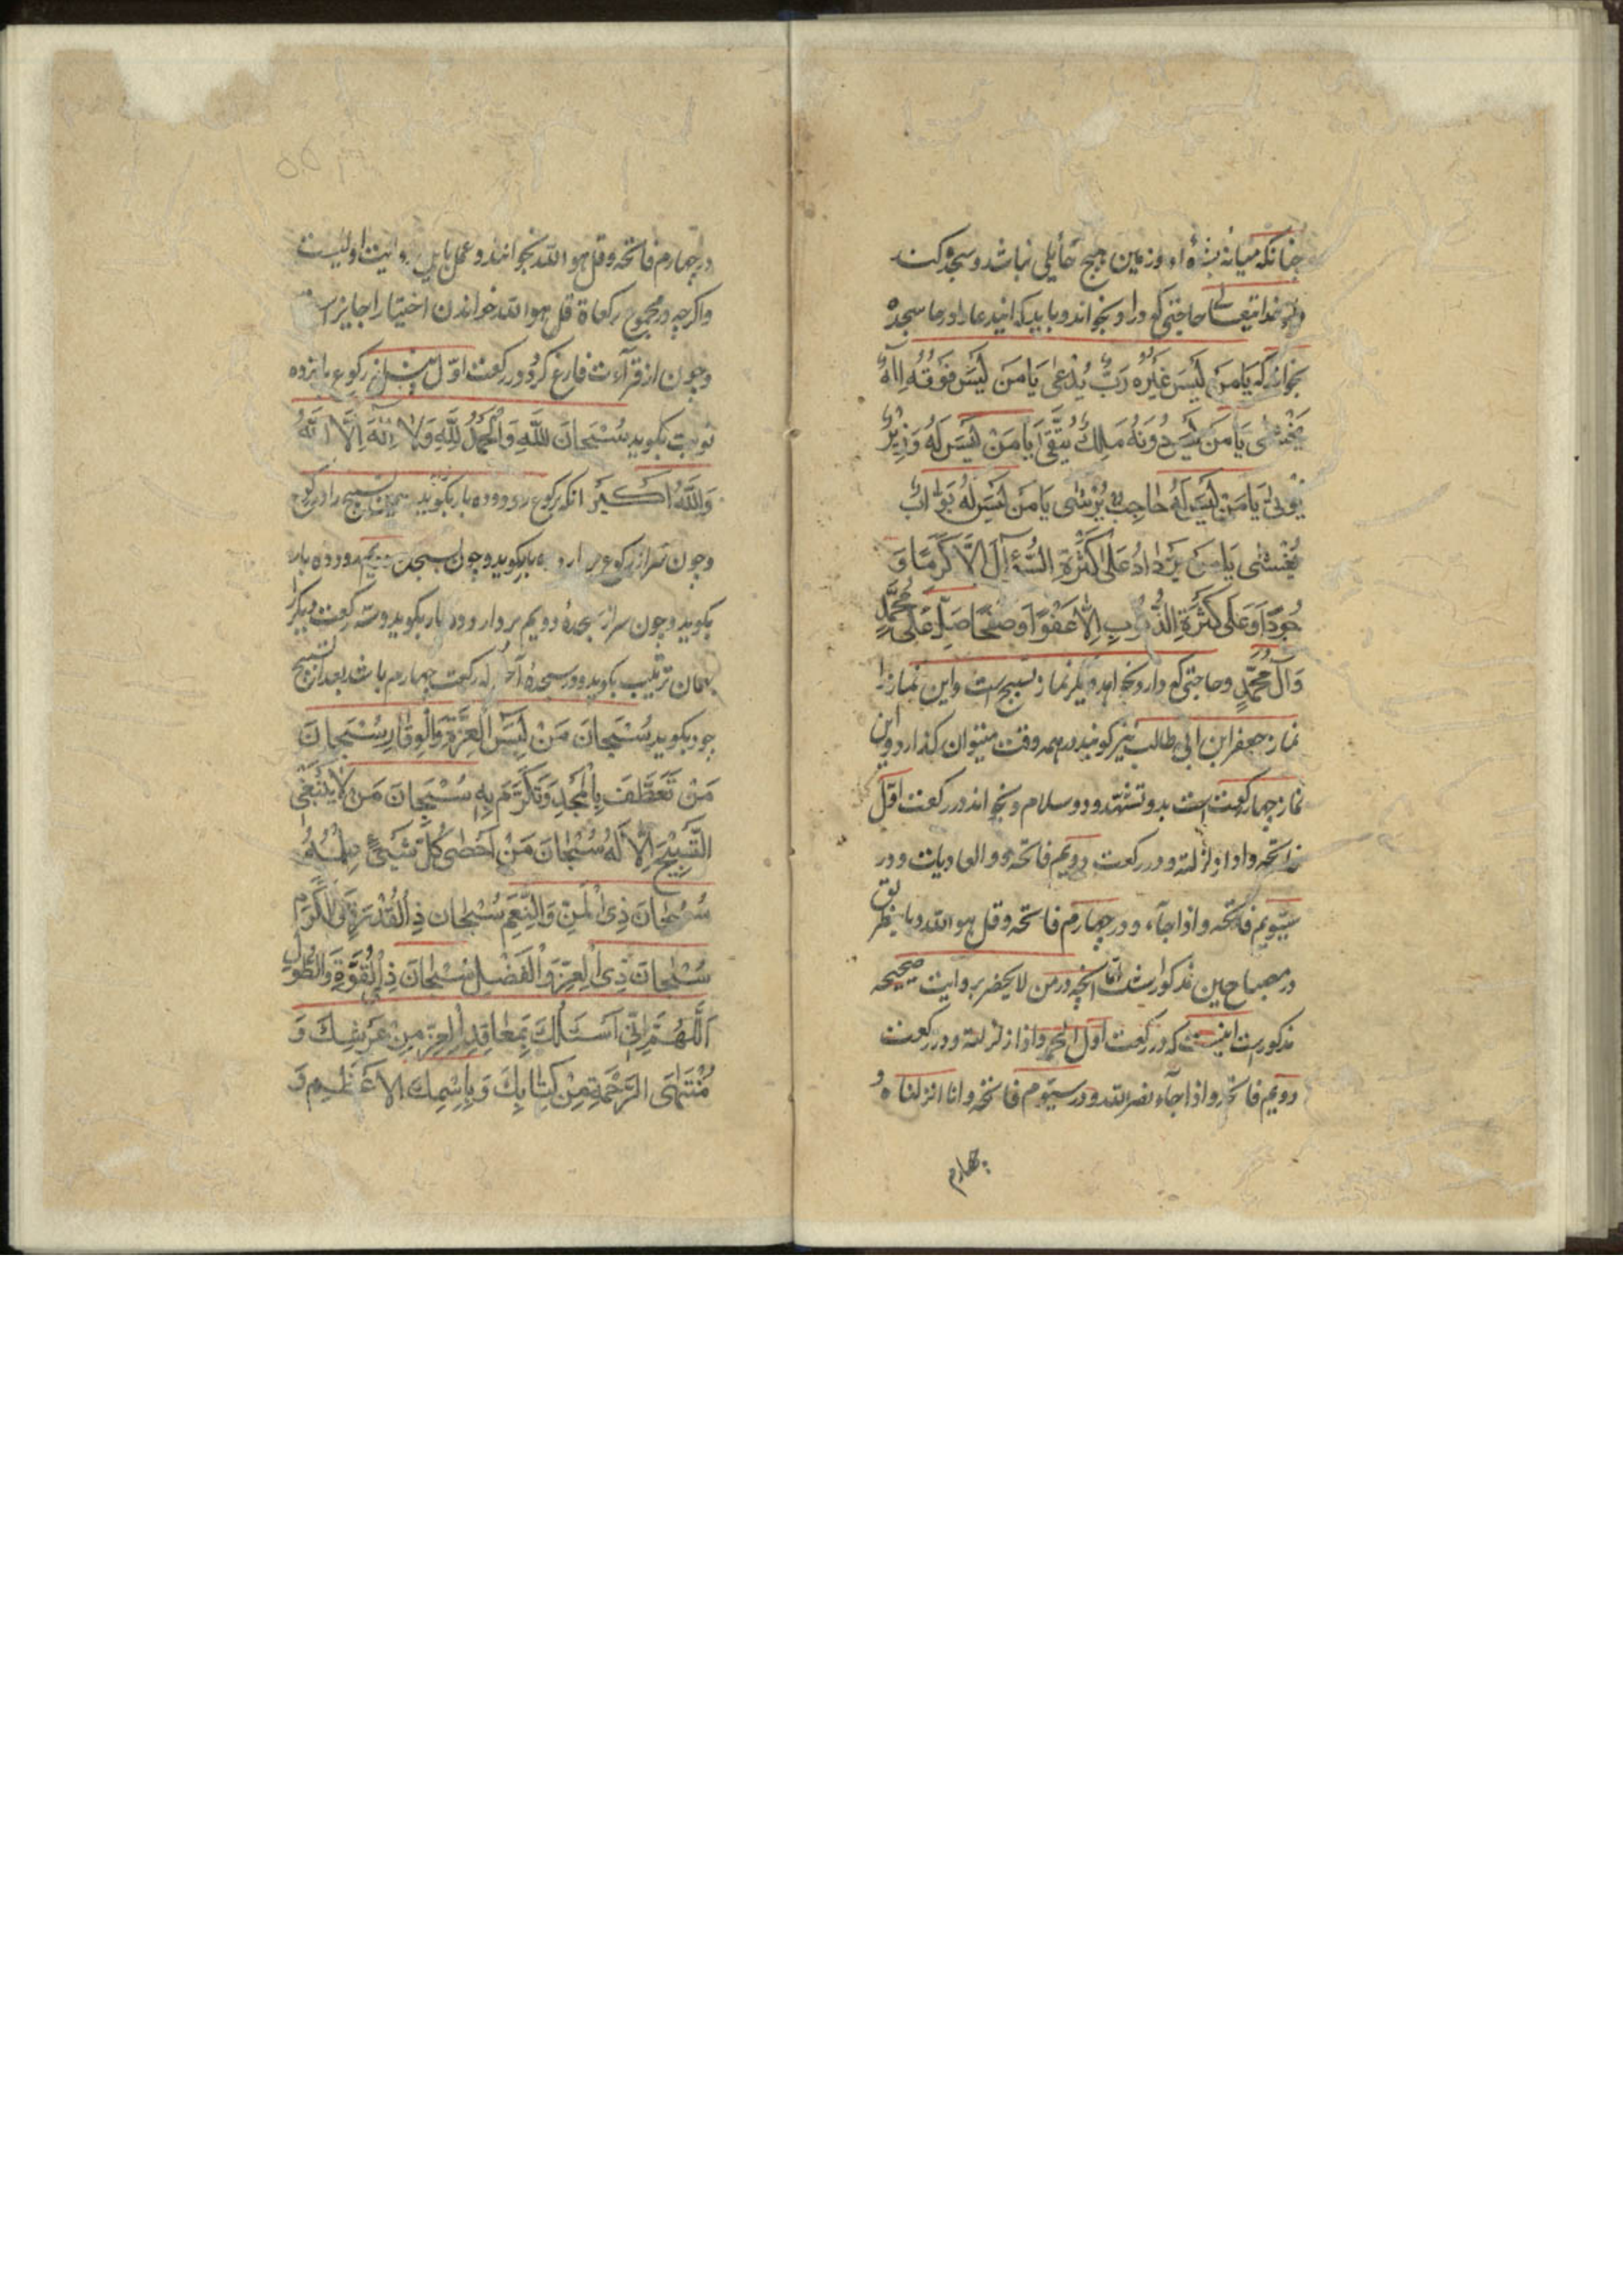 چنانکه میانهٔ بشرهٔ او و زمین هیچ حایلی نباشد و سجده کند
و از خدایتعالی حاجتی که دارد بخواهد و باید که این دعا را در سجده
بخواند که یَا مَن لَیسَ غَیرُه رَبٌّ یُدْعی یَا مَن لَیسَ فَوقَهُ اِلٰهٌ
یُخْشی یَا مَن لَیسَ دُونَهُ مَلِكٌ یُتَّقی یَا مَن لَیسَ لَهُ وَزِیرٌ
یُؤتی یَا مَن لَیسَ لَهُ حاجِبٌ یُرْشی یَا مَن لَیسَ لَهُ بَوّابٌ
یُغْشی یَا مَن لا یَزْدادُ عَلی کَثْرَةِ السُّؤالِ اِلّا کَرَمًا وَ
جُودًا وَعَلی کَثْرَةِ الذُّنُوبِ اِلّا عَفْوًا وَصَفْحًا صَلِّ عَلی مُحَمَّدٍ
وَآلِ مُحَمَّدٍ و حاجتی که دارد بخواهد دیگر نماز تسبیح است و این نماز را
نماز جعفر ابن ابی طالب نیز کویند در همه وقت میتوان کذارد و این
نماز چهار رکعت است بدو تشهد و دو سلام و بخواند در رکعت اول
فاتحه و اذا زلزلت و در رکعت دویم فاتحه و والعادیات و در
سیویم فاتحه و اذا جآء و در چهارم فاتحه و قل هو الله و باین طریق
در مصباحین مذکور است امّا آنچه در من لا یحضر بروایت صحیحه
مذکور است اینست که در رکعت اول الحمد و اذا زلزلت و در رکعت
دویم فاتحه و اذا جآء نصر الله و در سیوم فاتحه و انا انزلناه و
چهارم
در چهارم فاتحه و قل هو الله بخواند و عمل باین روایت اولیست
و اکرچه در مجموع رکعات قل هو الله خواندن اختیارا جایز است
و چون از قرآءت فارغ کردد در رکعت اوّل پیش از رکوع پانزده
نوبت بکوید سُبْحانَ اللّٰهِ وَالْحَمْدُ لِلّٰهِ وَلا اِلٰهَ اِلَّا اللّٰهُ
وَاللّٰهُ اَکْبَرُ آنکه برکوع رود و ده بار بکوید همین تسبیح را در رکوع
و چون سر از رکوع بردارد ده بار بکوید و چون بسجده رود ده بار
بکوید و چون سر از سجدهٔ دویم بردارد ده بار بکوید و سه رکعت دیکر را
بهمان ترتیب بکوید و در سجدهٔ آخر که رکعت چهارم باشد بعد از تسبیح
خود بکوید سُبْحانَ مَنْ لَبِسَ الْعِزَّةَ وَالْوِقارَ سُبْحانَ
مَنْ تَعَطَّفَ بِالْمَجْدِ وَتَکَرَّمَ بِهِ سُبْحانَ مَن لا یَنْبَغِی
التَّسْبِیحُ اِلّا لَهُ سُبْحانَ مَنْ اَحْصی کُلَّ شَیْءٍ عِلْمُهُ
سُبْحانَ ذِی الْمَنِّ وَالنِّعَمِ سُبْحانَ ذِی الْقُدْرَةِ وَالْکَرَمِ
سُبْحانَ ذِی الْعِزِّ وَالْفَضْلِ سُبْحانَ ذِی الْقُوَّةِ وَالطَّوْلِ
اَللّٰهُمَّ اِنّی اَسْئَلُكَ بِمَعاقِدِ الْعِزِّ مِنْ عَرْشِكَ وَ
مُنْتَهَی الرَّحْمَةِ مِنْ کِتابِكَ وَ بِاسْمِكَ الاَعْظَمِ وَ